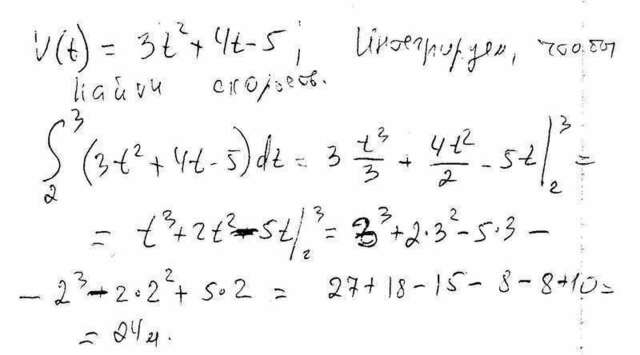 V(t) = 3t² + 4t - 5; Интегрируем, чтобы
найти скорость.
∫₂³ (3t² + 4t - 5) dt = 3 t³/3 + 4t²/2 - 5t |₂³ =
= t³ + 2t² - 5t |₂³ = 3³ + 2·3² - 5·3 -
- 2³ - 2·2² + 5·2 = 27 + 18 - 15 - 8 - 8 + 10 =
= 24 м.